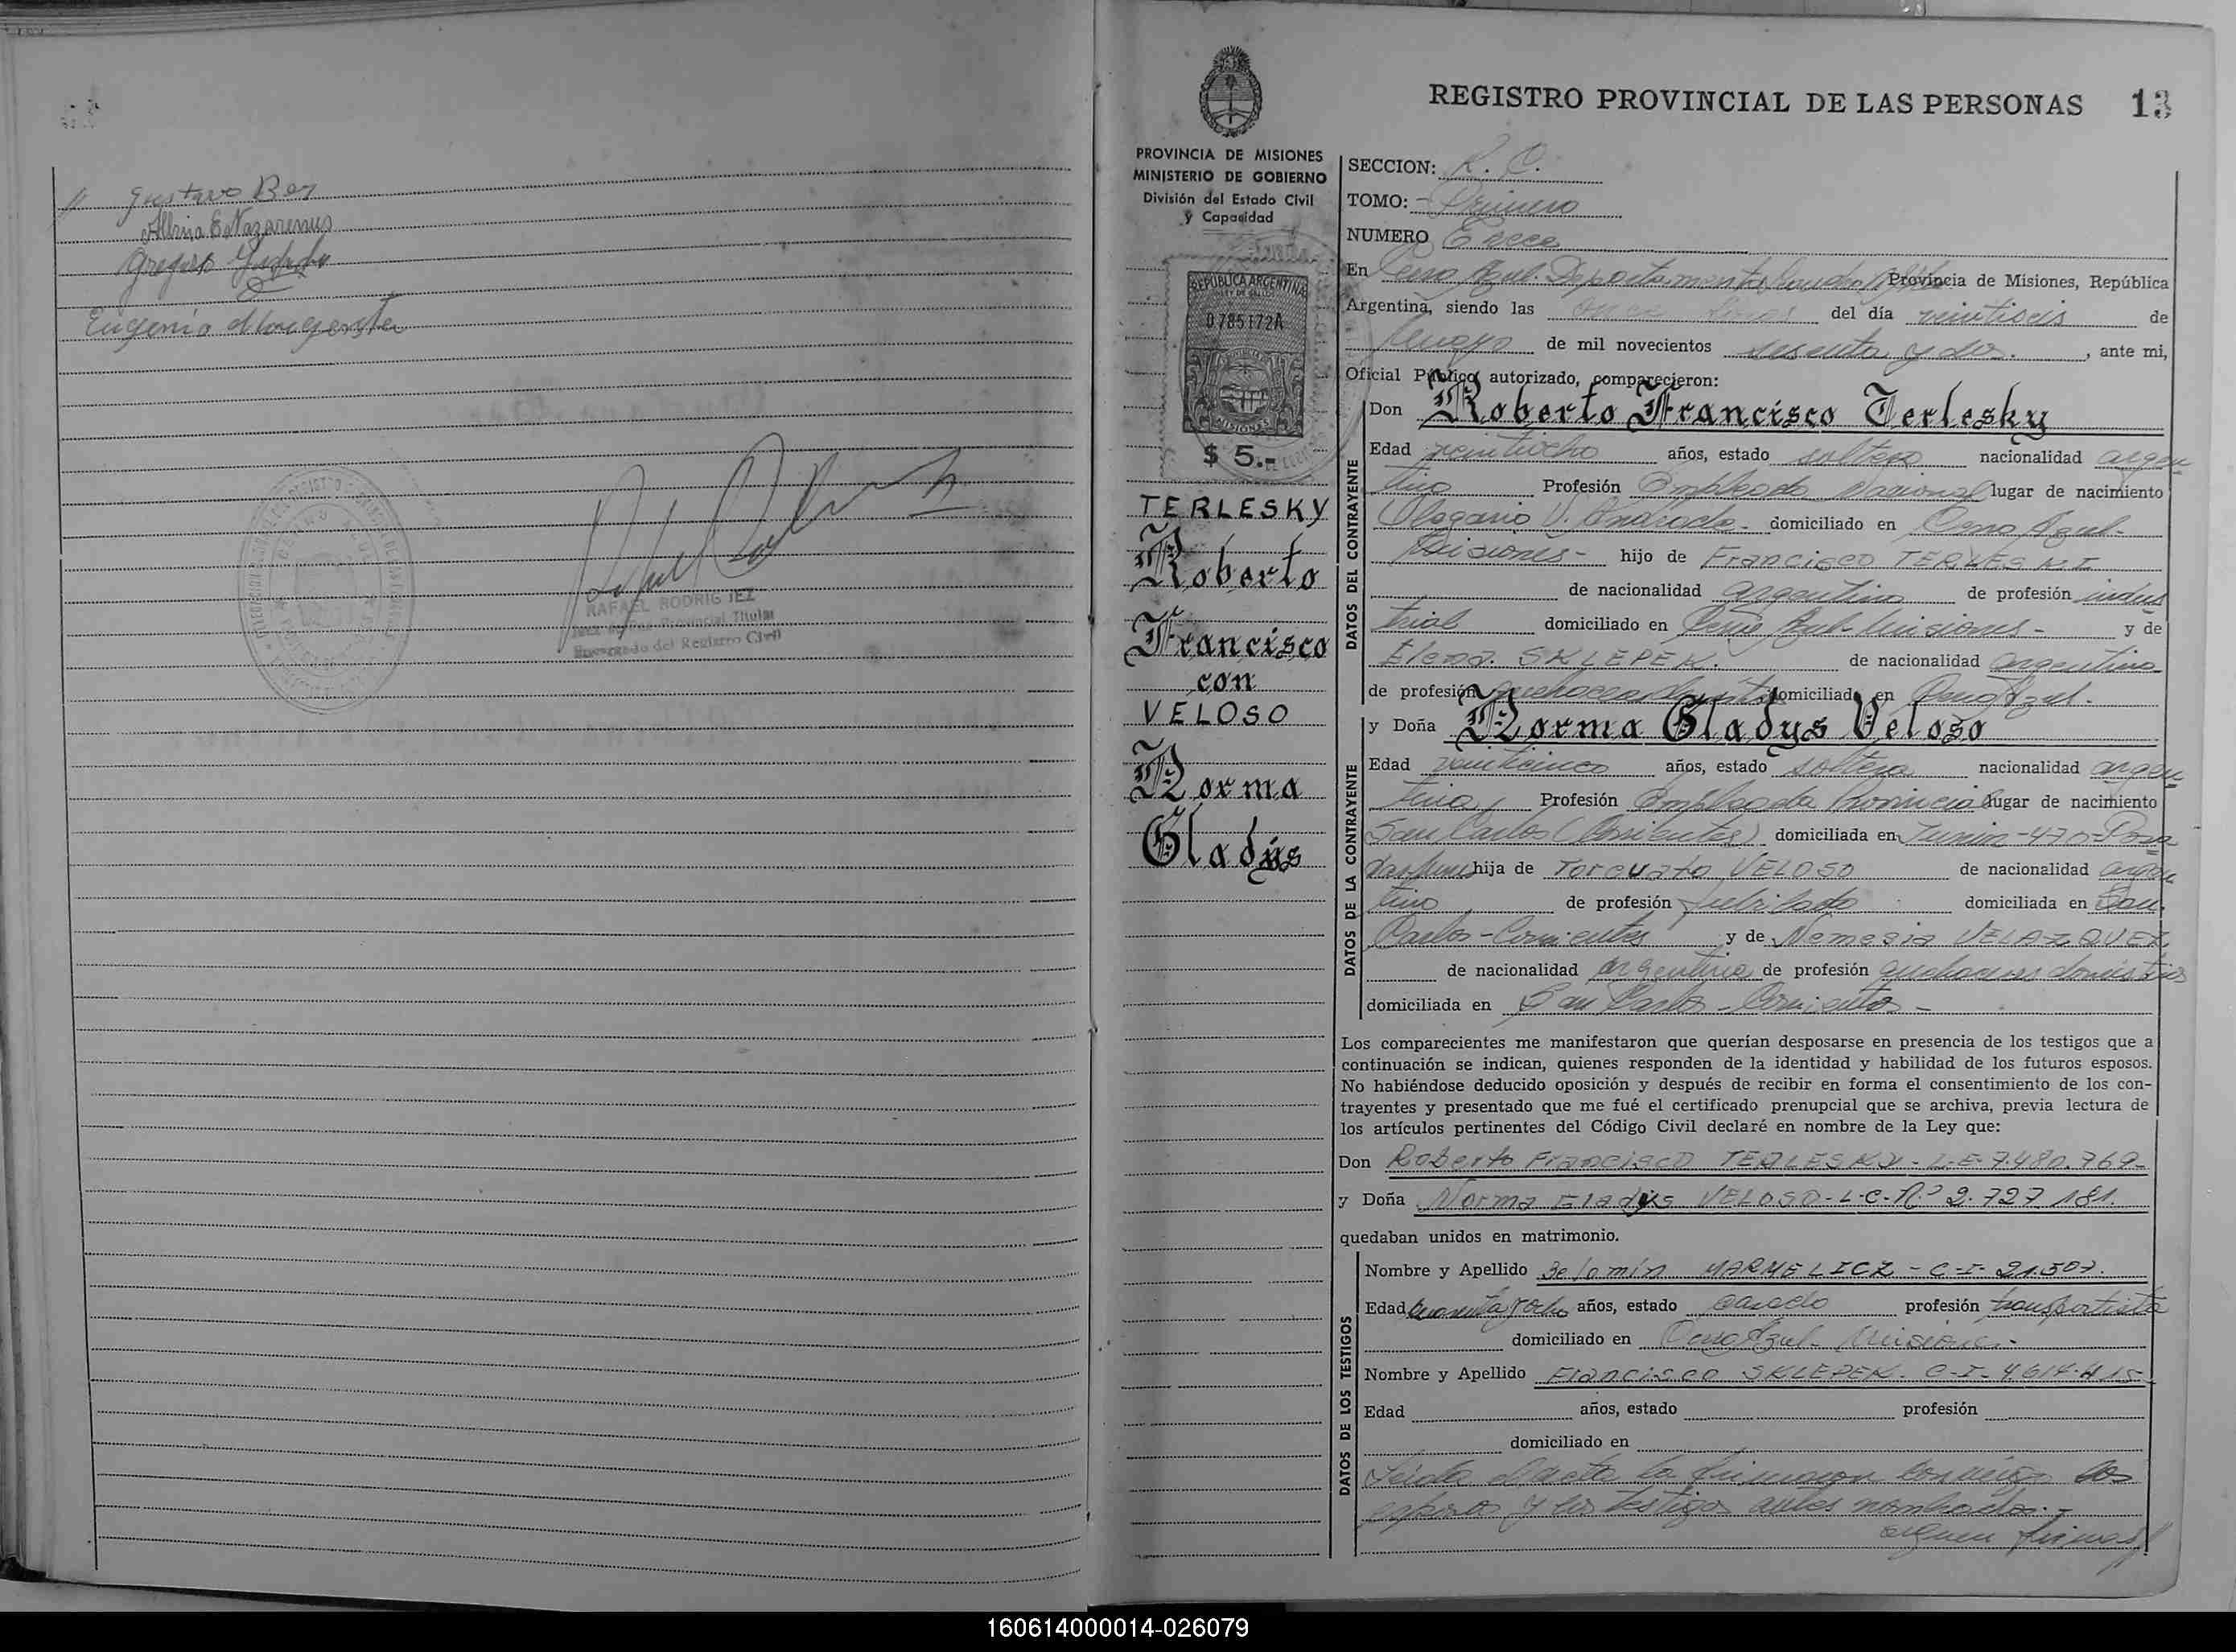 Gustavo Ber
Albina E. Nazarenus
Gregorio
Eugenio
RAFAEL RODRIGUEZ
Juez de Paz Provincial Titular
Encargado del Registro Civil
REGISTRO PROVINCIAL DE LAS PERSONAS 13
PROVINCIA DE MISIONES
MINISTERIO DE GOBIERNO
División del Estado Civil
y Capacidad
REPUBLICA ARGENTINA
LEY DE SELLOS
0785172A
MISIONES
$ 5.-
TERLESKY
Roberto
Francisco
con
VELOSO
Norma
Gladys
SECCION: R. C.
TOMO: - Primero
NUMERO Trece
En Cerro Azul. Departamento Leandro N. Alem Provincia de Misiones, República
Argentina, siendo las once horas del día veintiseis de
Mayo de mil novecientos sesenta y dos. , ante mi,
Oficial Público autorizado, comparecieron:
DATOS DEL CONTRAYENTE
Don Roberto Francisco Terlesky
Edad veintiocho años, estado soltero nacionalidad argen
tino Profesión Empleado Nacional lugar de nacimiento
Olegario V. Andrade - domiciliado en Cerro Azul -
Misiones - hijo de Francisco TERLESKI
de nacionalidad argentino de profesión indus
trial domiciliado en Cerro Azul - Misiones - y de
Elena SKLEPEK. de nacionalidad argentina
de profesión quehaceres domiciliada en Cerro Azul -
DATOS DE LA CONTRAYENTE
y Doña Norma Gladys Veloso
Edad veinticinco años, estado soltera nacionalidad argen
tina Profesión Empleada Provincial lugar de nacimiento
San Carlos (Corrientes) domiciliada en Junin - 470 - Posa
das hija de Torcuato VELOSO de nacionalidad argen
tino de profesión jubilado domiciliada en San
Carlos - Corrientes y de Nemesia VELAZQUEZ
de nacionalidad argentina de profesión quehaceres domésticos
domiciliada en San Carlos - Corrientes -
Los comparecientes me manifestaron que querían desposarse en presencia de los testigos que a
continuación se indican, quienes responden de la identidad y habilidad de los futuros esposos.
No habiéndose deducido oposición y después de recibir en forma el consentimiento de los con-
trayentes y presentado que me fué el certificado prenupcial que se archiva, previa lectura de
los artículos pertinentes del Código Civil declaré en nombre de la Ley que:
Don Roberto Francisco TERLESKY - L.E. 7.480.769-
y Doña Norma Gladys VELOSO - L.C. Nº 2.727.181.
quedaban unidos en matrimonio.
DATOS DE LOS TESTIGOS
Nombre y Apellido Jelomin MARMELICZ - C-I- 21.507.
Edad cuarenta y ocho años, estado casado profesión transportista
domiciliado en Cerro Azul - Misiones -
Nombre y Apellido Francisco SKLEPEK. C-I- 4.614.415-
Edad años, estado profesión
domiciliado en
Leida el acta la firmaron conmigo los
esposos y los testigos antes nombrados. -
siguen firmas //
160614000014-026079